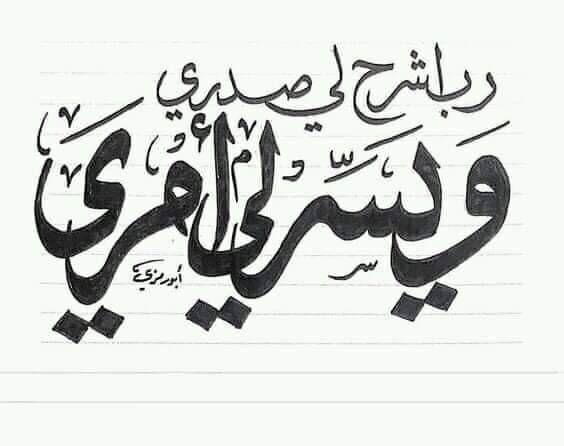 رب اشرح لي صدري
ويسّر لي أمري
أبو رمزي